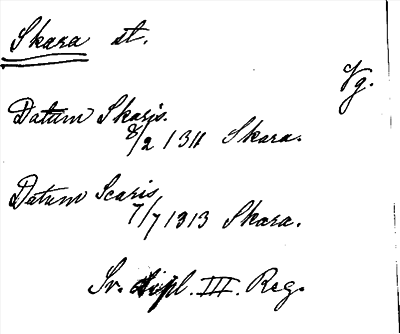 Skara st.
Vg.
Datum Skaris.
8/2 1311 Skara.
Datum Scaris
7/7 1313 Skara.
Sv. dipl. III. Reg.